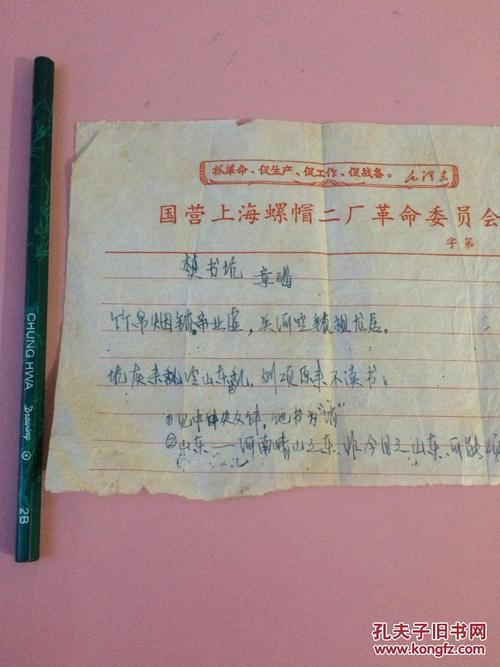 抓革命、促生产、促工作、促战备。 毛泽东
国营上海螺帽二厂革命委员会
字第
焚书坑 章碣
竹帛烟销帝业虚,关河空锁祖龙居。
坑灰未冷山东乱,刘项原来不读书。
①见中华文,他书为"消"
②山东——河南崤山之东,非今日之山东,可能
CHUNG HWA
Drawing
2B
孔夫子旧书网
www.kongfz.com